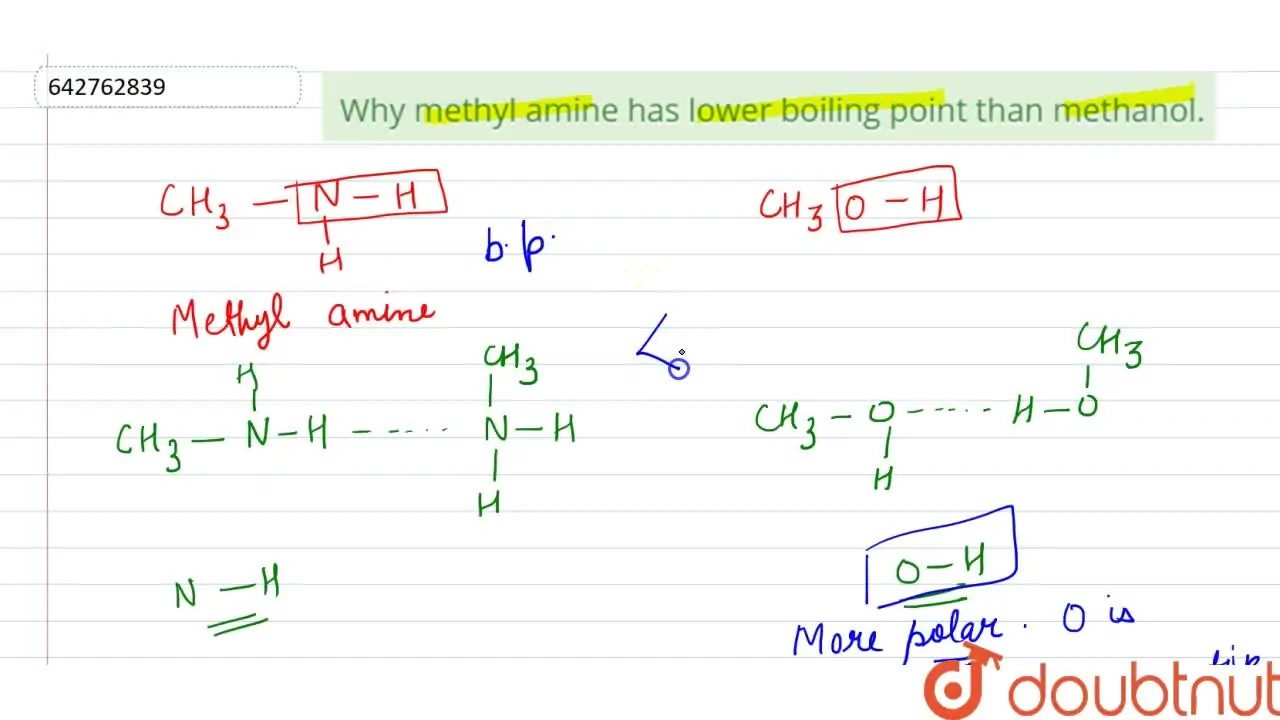 642762839
Why methyl amine has lower boiling point than methanol.
CH3 — N — H
H
CH3 O — H
b.p.
Methyl amine
<
H
CH3 — N — H ----- N — H
CH3
H
CH3
CH3 — O ----- H — O
H
N — H
O — H
More polar. O is
doubtnut